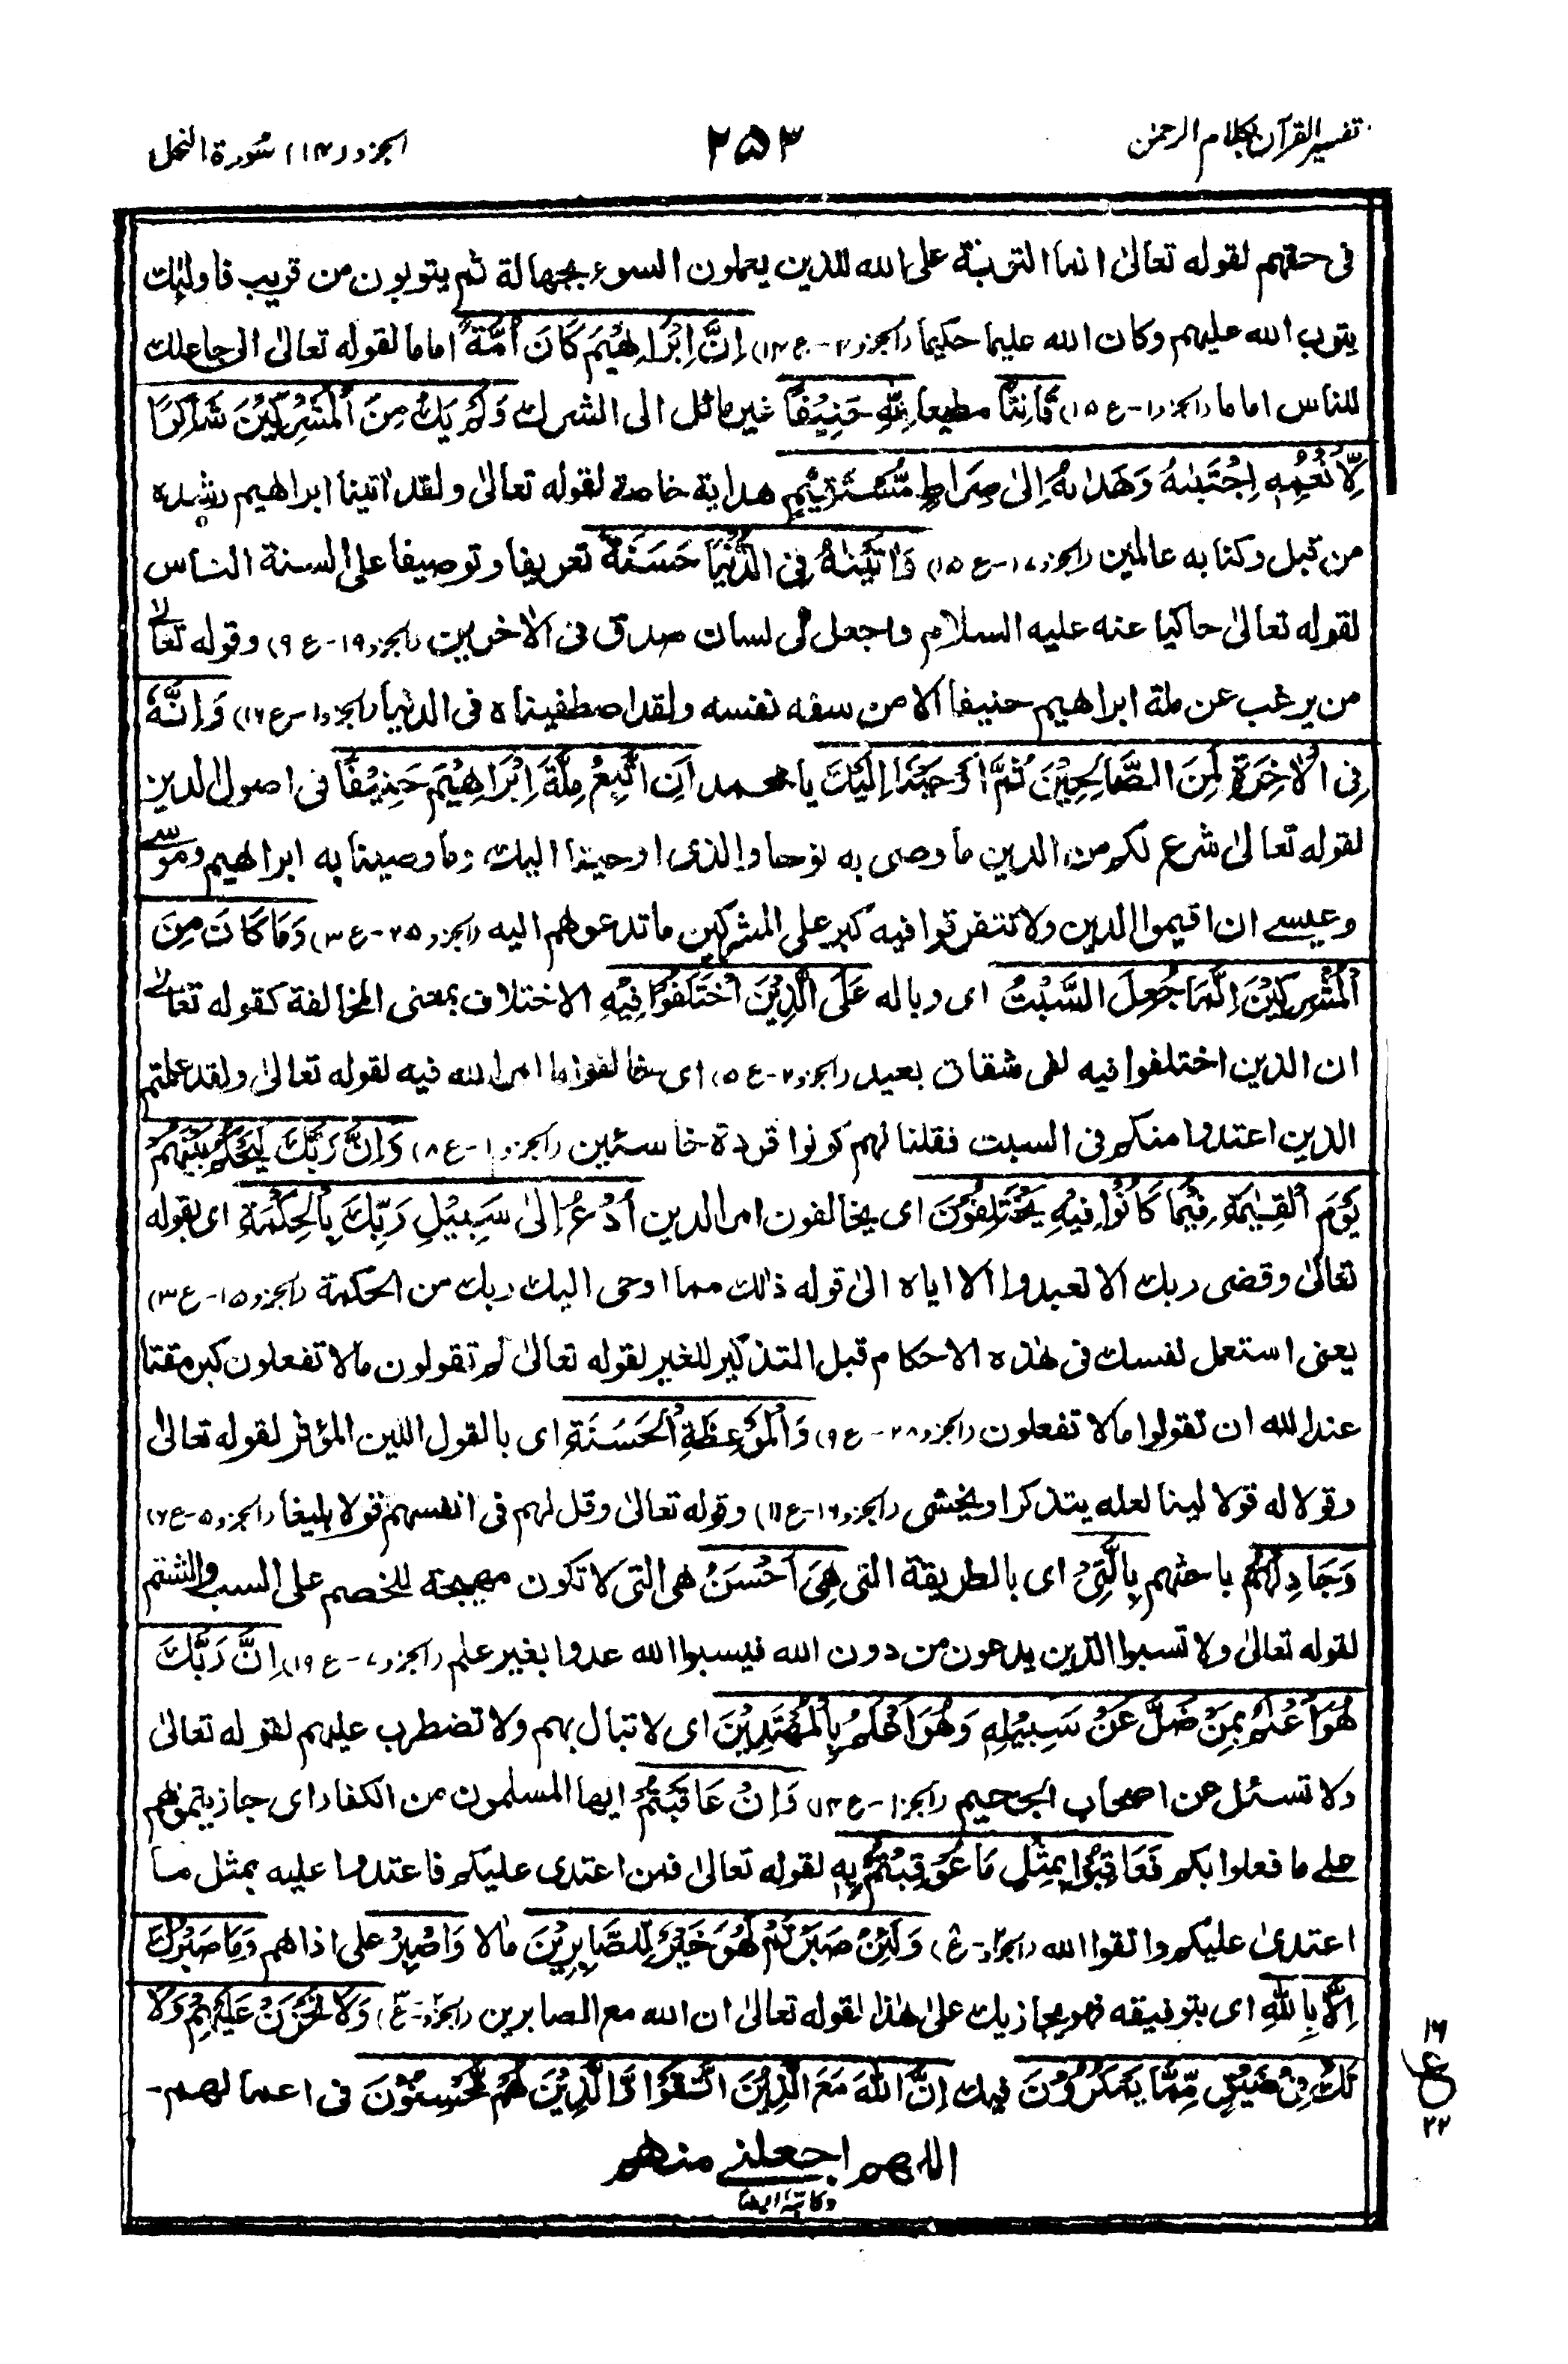 تفسير القرآن بكلام الرحمن
۲۵۳
الجزء (۱۴) سُورة النحل
فى حقهم لقوله تعالىٰ انما التوبة على الله للذين يعملون السوء بجهالة ثم يتوبون من قريب فاولئك
يتوب الله عليهم وكان الله عليما حكيما (الجزء ۴ - ع ۱۴) اِنَّ اِبْرَاهِيْمَ كَانَ اُمَّةً اماما لقوله تعالىٰ انى جاعلك
للناس اماما (الجزء ۱ - ع ۱۵) قَانِتًا مطيعا لِلّٰهِ حَنِيْفًا غير مائل الى الشرك وَلَمْ يَكُ مِنَ الْمُشْرِكِيْنَ شَاكِرًا
لِّاَنْعُمِهِ اِجْتَبٰىهُ وَهَدَاىهُ اِلىٰ صِرَاطٍ مُّسْتَقِيْمٍ هداية خاصة لقوله تعالىٰ ولقد اتينا ابراهيم رشده
من قبل وكنا به عالمين (الجزء ۱۷ - ع ۵) وَاٰتَيْنٰهُ فِى الدُّنْيَا حَسَنَةً تعريفا وتوصيفا على السنة الناس
لقوله تعالىٰ حاكيا عنه عليه السلام واجعل لى لسان صدق فى الاخرين (الجزء ۱۹ - ع ۹) وقوله تعالىٰ
من يرغب عن ملة ابراهيم حنيفا الا من سفه نفسه ولقد اصطفيناه فى الدنيا (الجزء ۱ - ع ۱۶) وَاِنَّهٗ
فِى الْاٰخِرَةِ لَمِنَ الصَّالِحِيْنَ ثُمَّ اَوْحَيْنَا اِلَيْكَ يا محمد اَنِ اتَّبِعْ مِلَّةَ اِبْرَاهِيْمَ حَنِيْفًا فى اصول الدين
لقوله تعالىٰ شرع لكم من الدين ما وصى به نوحا والذى اوحينا اليك وما وصينا به ابراهيم وموسےٰ
وعيسےٰ ان اقيموا الدين ولا تتفرقوا فيه كبر على المشركين ما تدعوهم اليه (الجزء ۲۵ - ع ۳) وَمَا كَانَ مِنَ
الْمُشْرِكِيْنَ اِنَّمَا جُعِلَ السَّبْتُ اى وباله عَلَى الَّذِيْنَ اخْتَلَفُوْا فِيْهِ الاختلاف بمعنى المخالفة كقوله تعالىٰ
ان الذين اختلفوا فيه لفى شقاق بعيد (الجزء ۲ - ع ۵) اى خالفوا ما امر الله فيه لقوله تعالىٰ ولقد علمتم
الذين اعتدوا منكم فى السبت فقلنا لهم كونوا قردة خاسئين (الجزء ۱ - ع ۸) وَاِنَّ رَبَّكَ لَيَحْكُمُ بَيْنَهُمْ
يَوْمَ الْقِيٰمَةِ فِيْمَا كَانُوْا فِيْهِ يَخْتَلِفُوْنَ اى يخالفون امر الدين اُدْعُ اِلىٰ سَبِيْلِ رَبِّكَ بِالْحِكْمَةِ اى بقوله
تعالىٰ وقضى ربك الا تعبدوا الا اياه الىٰ قوله ذالك مما اوحى اليك ربك من الحكمة (الجزء ۱۵ - ع ۳)
يعنى استعمل نفسك فى هٰذه الاحكام قبل التذكير للغير لقوله تعالىٰ لم تقولون مالا تفعلون كبر مقتا
عند الله ان تقولوا مالا تفعلون (الجزء ۲۸ - ع ۹) وَالْمَوْعِظَةِ الْحَسَنَةِ اى بالقول اللين المؤثر لقوله تعالىٰ
وقولا له قولا لينا لعله يتذكر او يخشى (الجزء ۱۶ - ع ۱۱) وقوله تعالىٰ وقل لهم فى انفسهم قولا بليغا (الجزء ۵ - ع ۶)
وَجَادِلْهُمْ باحثهم بِالَّتِىْ اى بالطريقة التى هِىَ اَحْسَنُ هى التى لا تكون مهيجة للخصم على السب والشتم
لقوله تعالىٰ ولا تسبوا الذين يدعون من دون الله فيسبوا الله عدوا بغير علم (الجزء ۷ - ع ۱۹) اِنَّ رَبَّكَ
هُوَ اَعْلَمُ بِمَنْ ضَلَّ عَنْ سَبِيْلِهِ وَهُوَ اَعْلَمُ بِالْمُهْتَدِيْنَ اى لا تبال بهم ولا تضطرب عليهم لقوله تعالىٰ
ولا تسئل عن اصحاب الجحيم (الجزء ۱ - ع ۱۴) وَاِنْ عَاقَبْتُمْ ايها المسلمون من الكفار اى جازيتموهم
علے ما فعلوا بكم فَعَاقِبُوْا بِمِثْلِ مَا عُوْقِبْتُمْ بِهٖ لقوله تعالىٰ فمن اعتدى عليكم فاعتدوا عليه بمثل ما
اعتدىٰ عليكم واتقوا الله وَلَئِنْ صَبَرْتُمْ لَهُوَ خَيْرٌ لِّلصَّابِرِيْنَ مآلا وَاصْبِرْ على اذاهم وَمَا صَبْرُكَ
اِلَّا بِاللّٰهِ اى بتوفيقه فهو يجازيك علىٰ هٰذا لقوله تعالىٰ ان الله مع الصابرين وَلَا تَحْزَنْ عَلَيْهِمْ وَلَا
تَكُ فِىْ ضَيْقٍ مِّمَّا يَمْكُرُوْنَ فيك اِنَّ اللّٰهَ مَعَ الَّذِيْنَ اتَّقَوْا وَّالَّذِيْنَ هُمْ مُّحْسِنُوْنَ فى اعمالهم-
۱۶
ع
۲۲
اللهم اجعلنے منهم
وكاتبه ايضا